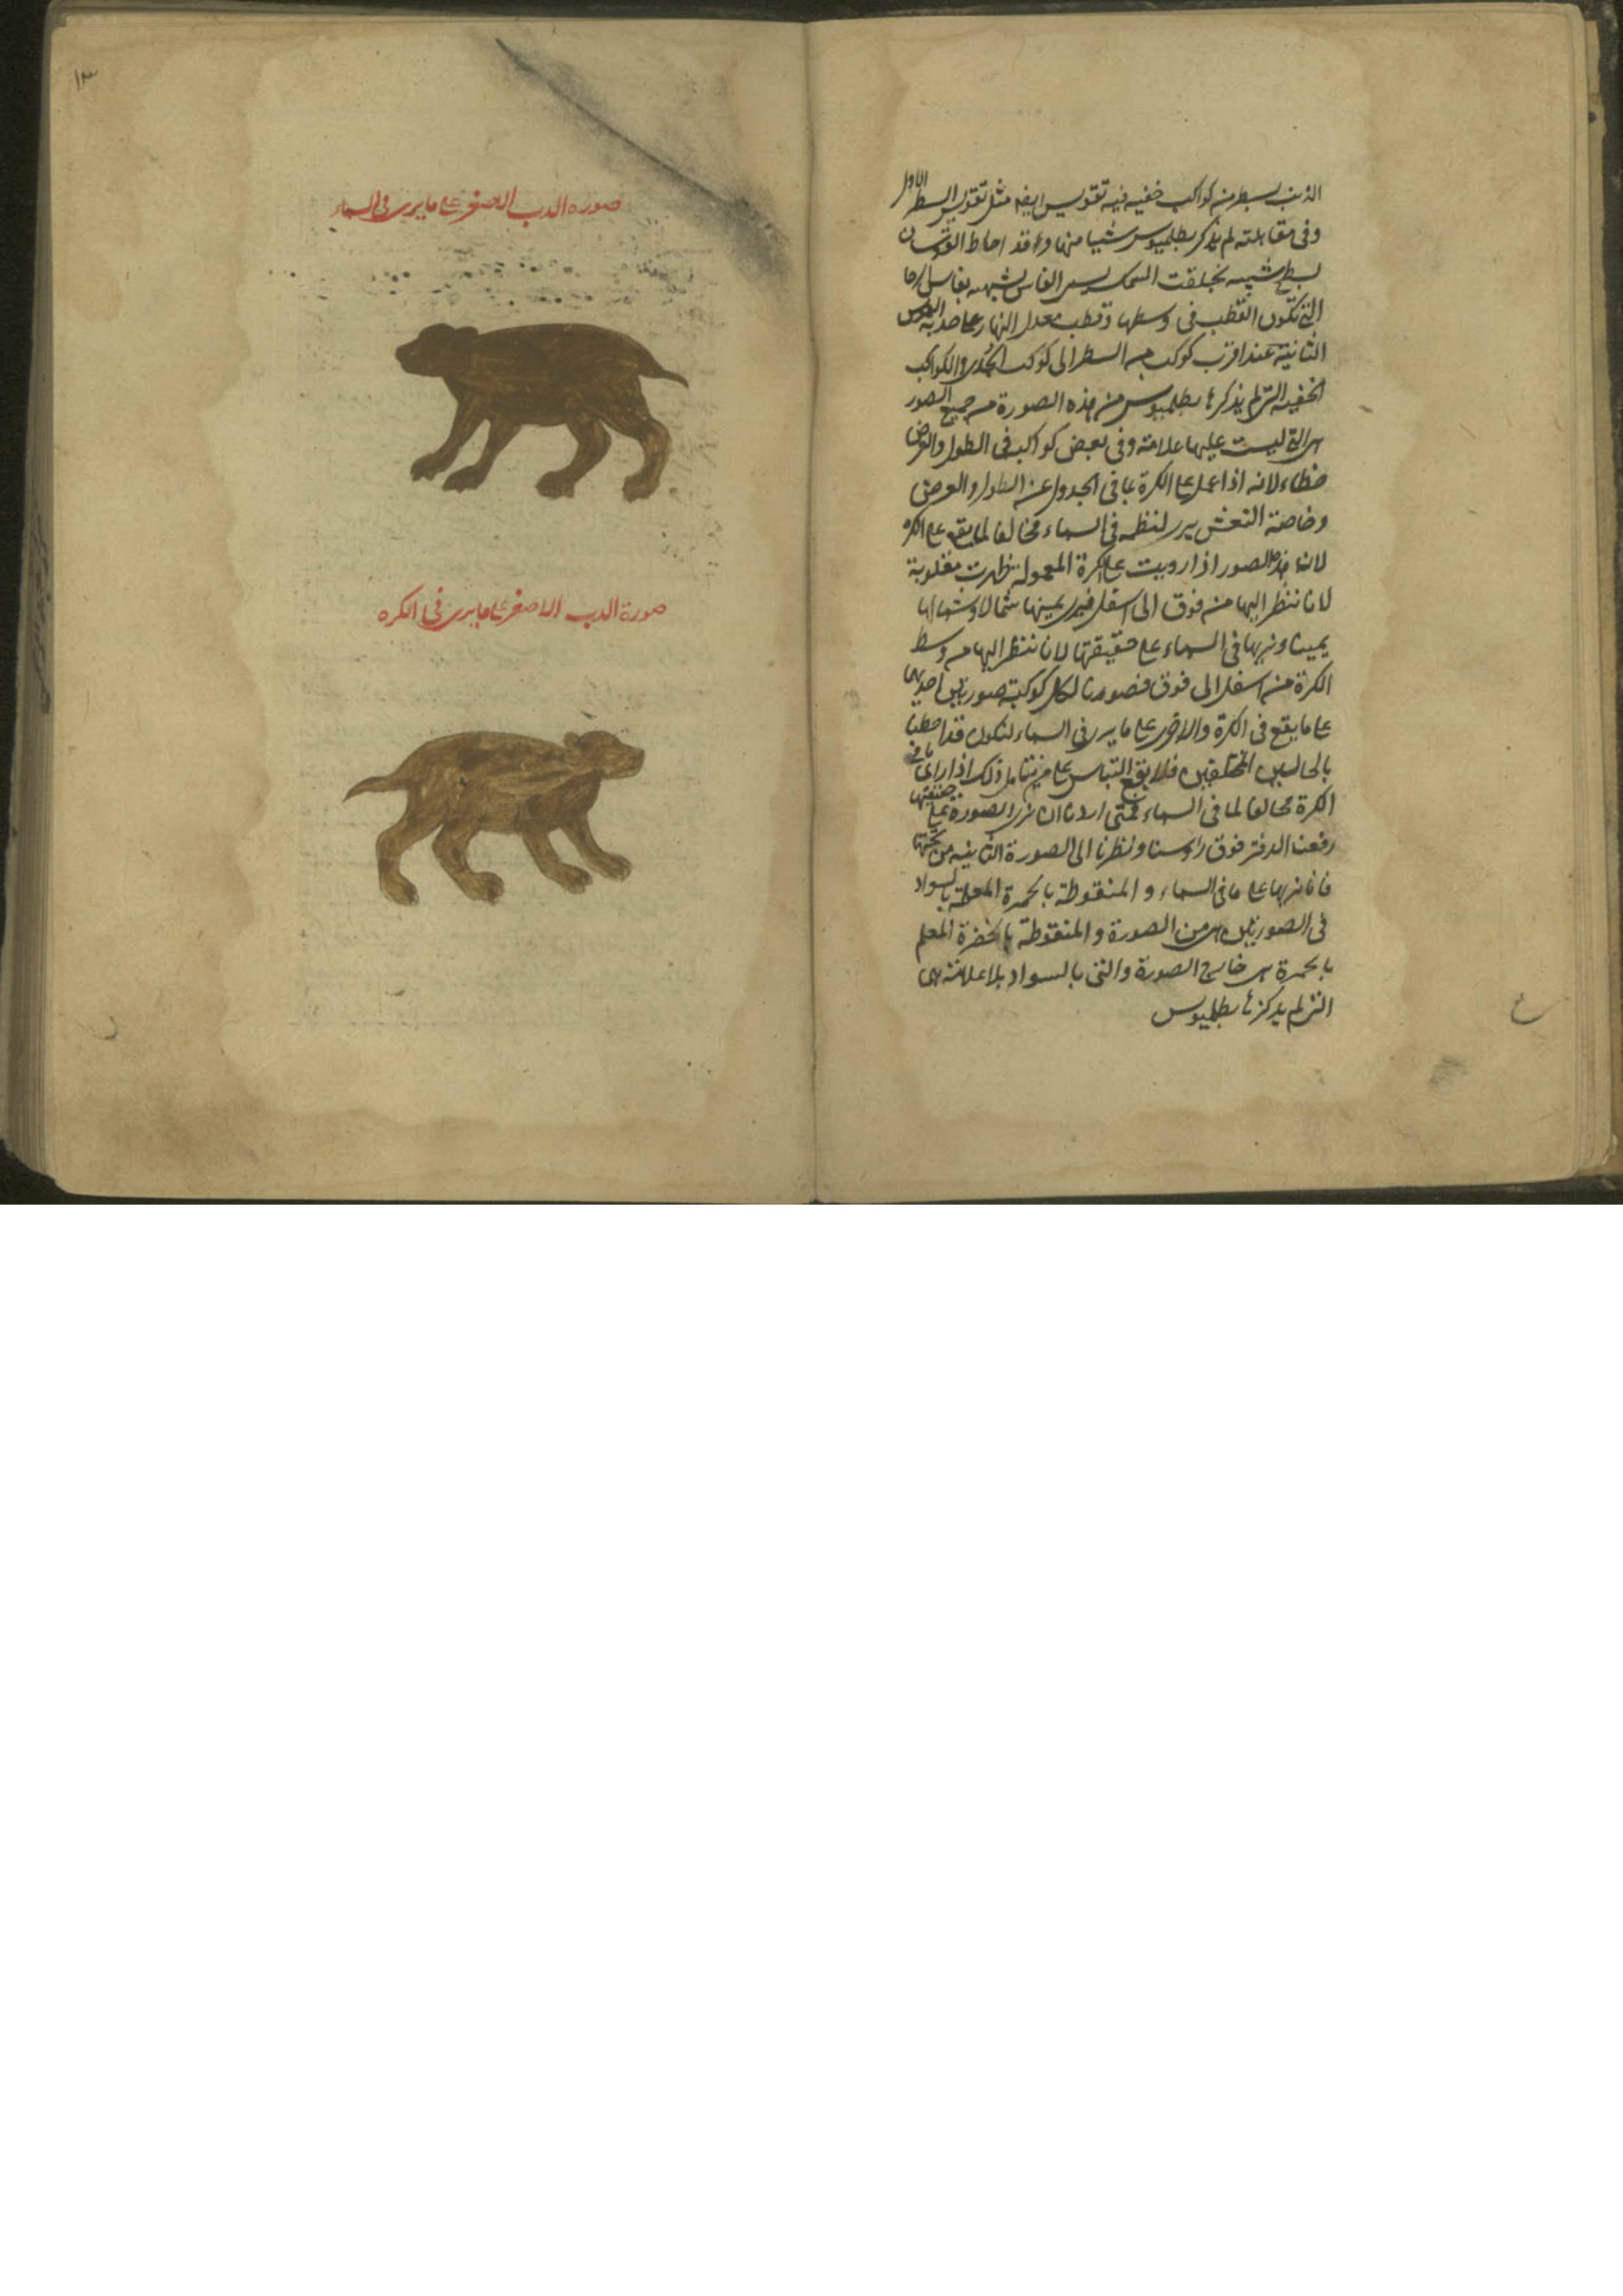 الذنب سطر من كواكب خفيه فيه تقويس ايضا مثل تقويس السطر الاول
وفى مقابلته لم يذكر بطلميوس شيا منها وقد احاط القوسان
بسطح شبيه بخلقت السمك يسمى الفاس لشبهه بفاس الرحا
التى تكون القطب فى وسطها وقطب معدل النهار على حدبة القوس
الثانية عند اقرب كوكب من السطر الى كوكب الجدى والكواكب
الخفيه التى لم يذكرها بطلميوس من هذه الصورة من جميع الصور
هى التى ليست عليها علامة وفى بعض كواكب فى الطول والعرض
خطاء لانه اذا عمل على الكرة بما فى الجدول من الطول والعرض
وخاصة النعش يرى نظمه فى السماء مخالفا لما يقع على الكره
لان هذه الصور اذا رويت على الكرة المعمولة ظهرت مقلوبة
لانا ننظر اليها من فوق الى اسفل فيرى يمينها شمالا وشمالها
يمينا ونريها فى السماء على حقيقتها لانا ننظر اليها من وسط
الكرة من اسفل الى فوق فصورنا لكل كوكبة صورتين احديهما
على ما يقع فى الكرة والاخرى على ما يرى فى السماء لنكون قد احطنا
بالحالين المختلفين فلا يقع التباس على من يتامل ذلك اذا راى ما فى
الكرة مخالفا لما فى السماء فمتى اردنا ان نرى الصورة على حقيقتها
رفعنا الدفتر فوق راوسنا ونظرنا الى الصورة الثانيه من تحتها
فانا نريها على ما فى السماء و المنقوطة بالحمرة المعلمة بالسواد
فى الصورتين هى من الصورة و المنقوطة بالخضرة المعلم
بالحمرة هى خارج الصورة والتى بالسواد بلا علامة هى
التى لم يذكرها بطلميوس
١٣
صوره الدب الاصغر على ما يرى فى السماء
صورة الدب الاصغر على ما يرى فى الكره